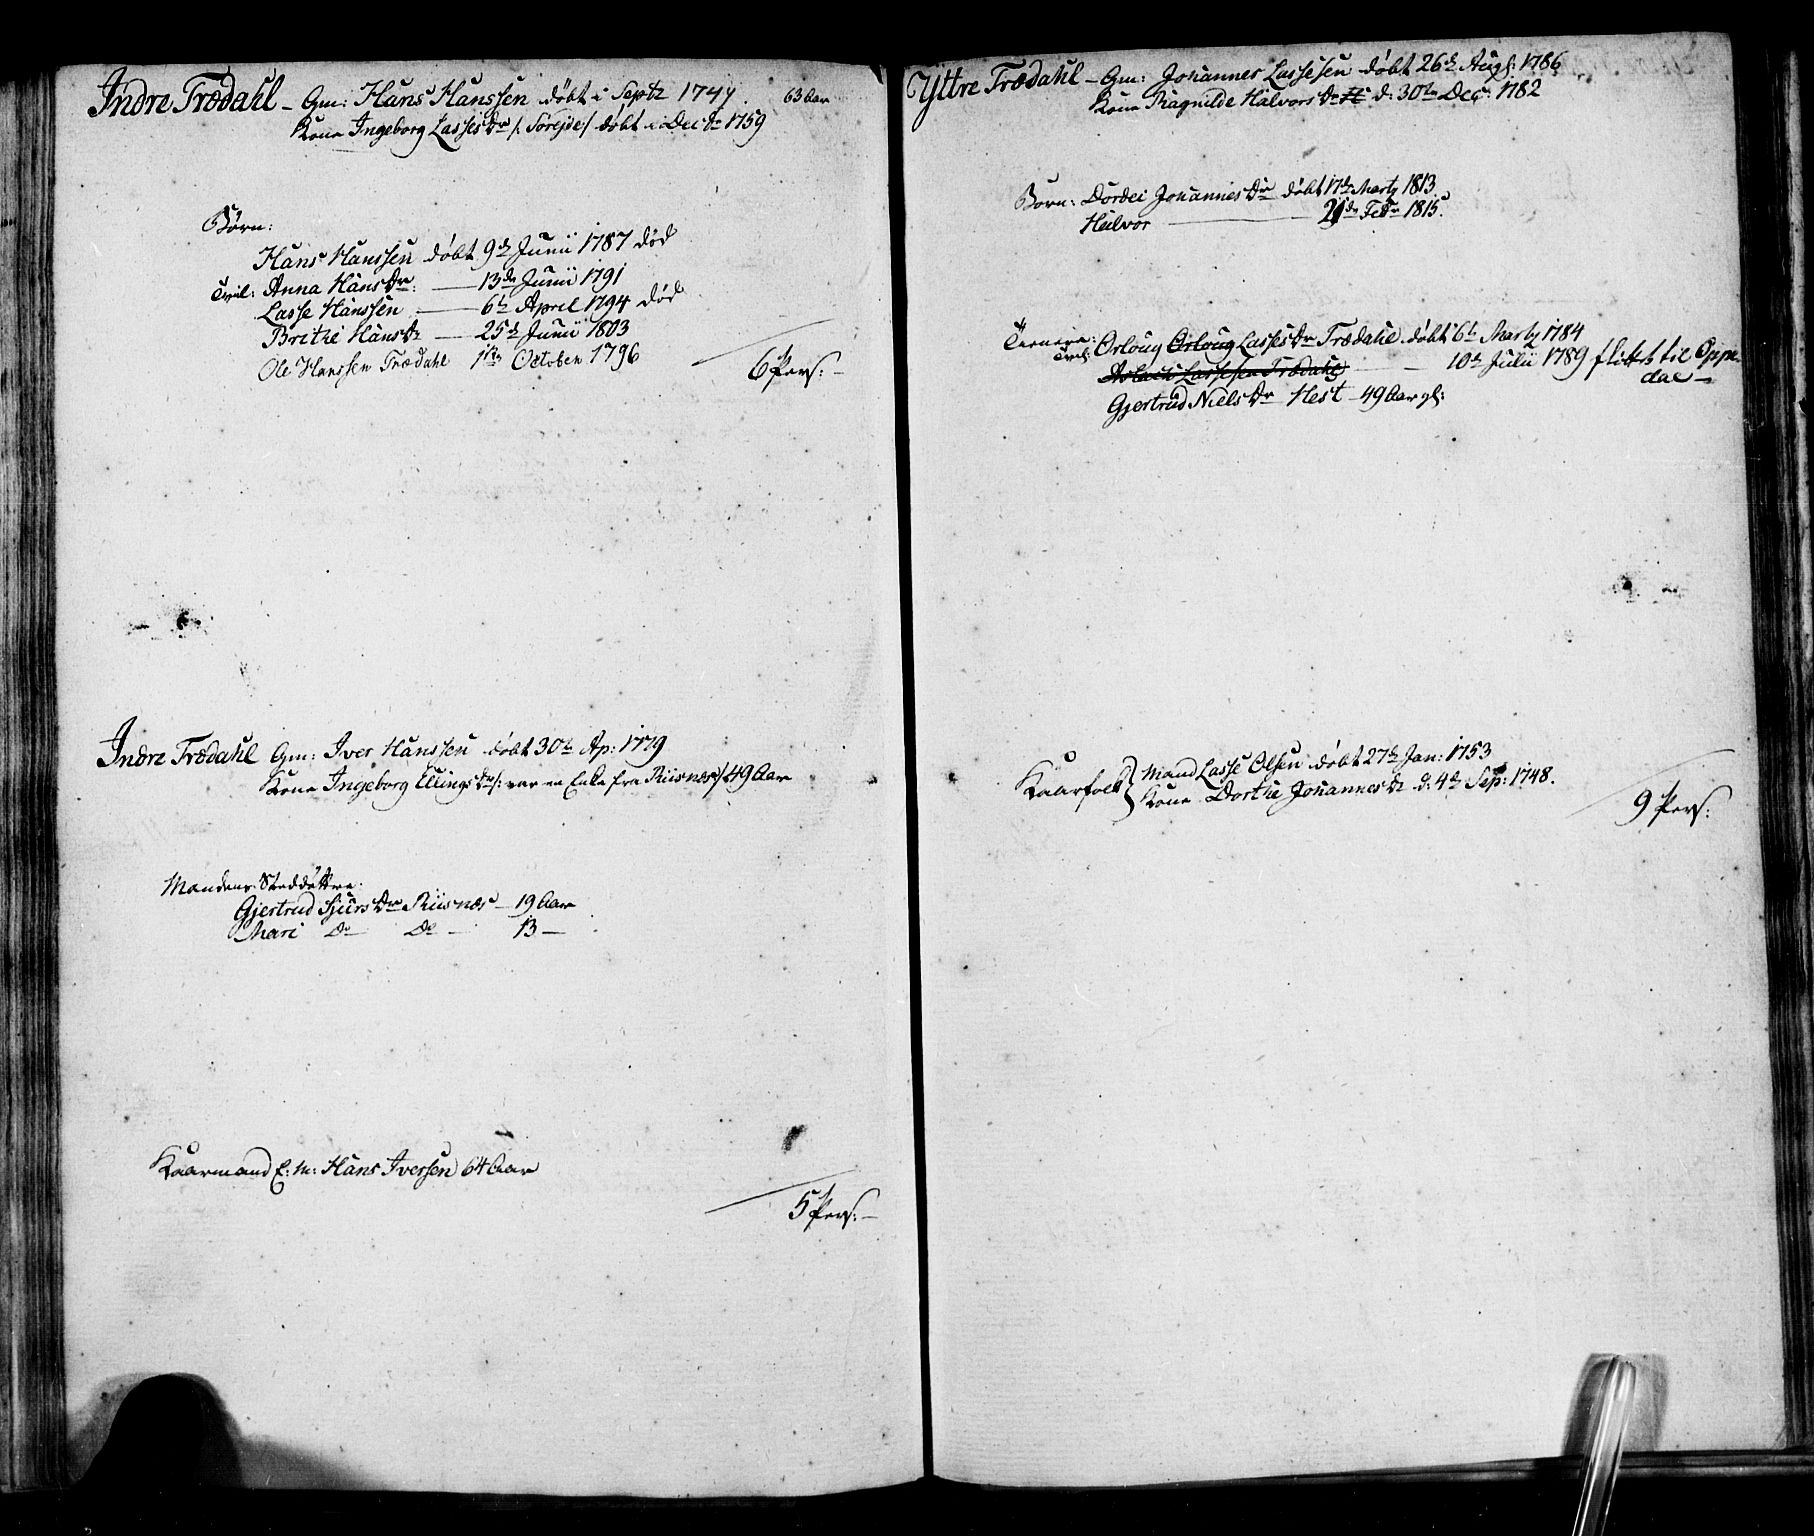 Indre Trædahl – Gm: Hans Hanssen døbt i Septr 1747. 63 Aar
Kone Ingeborg Lassesdr /: Sørejde / døbt i Decbr 1759
Børn:
Hans Hanssen døbt 9de Junii 1787 død
Tvil: Anna Hansdr: — 13de Junii 1791
Lasse Hanssen — 6te April 1794 død
Brithe Hansdr — 25de Junii 1803
Ole Hanssen Trædahl 1ste October 1796
6 Pers: –
Indre Trædahl Gm: Iver Hanssen døbt 30te Ap: 1779
Kone Ingeborg Ellingsdr /: var en Enke fra Riisnæs / 49 Aar
Mandens Steddøttre:
Gjertrud Sjursdr Riisnæs – 19 Aar
Mari Do Do – 13 –
Kaarmand E: M: Hans Iversen 64 Aar
5 Pers: –
Yttre Trædahl – Gm: Johannes Lassesen døbt 26de Augs: 1786
Kone Ragnilde Halvorsdr d: 30te Dec: 1782
Børn: Dordei Johannesdr døbt 17de Marty 1813
Halvor — 21de Febr 1815.
Tienere:
Tvil: Orloug Orloug Lassesdr Trædahl døbt 6te Marty 1784
Lassesen Trædahl — 10de Julii 1789 flöttet til Oppe
dal –
Gjertrud Nielsdr Hest – 49 Aar gl:
Kaarfolk } Mand Lasse Olsen døbt 27de Jan: 1753
Kone Dorthe Johannesdr d: 4de Sep: 1748.
9 Pers: